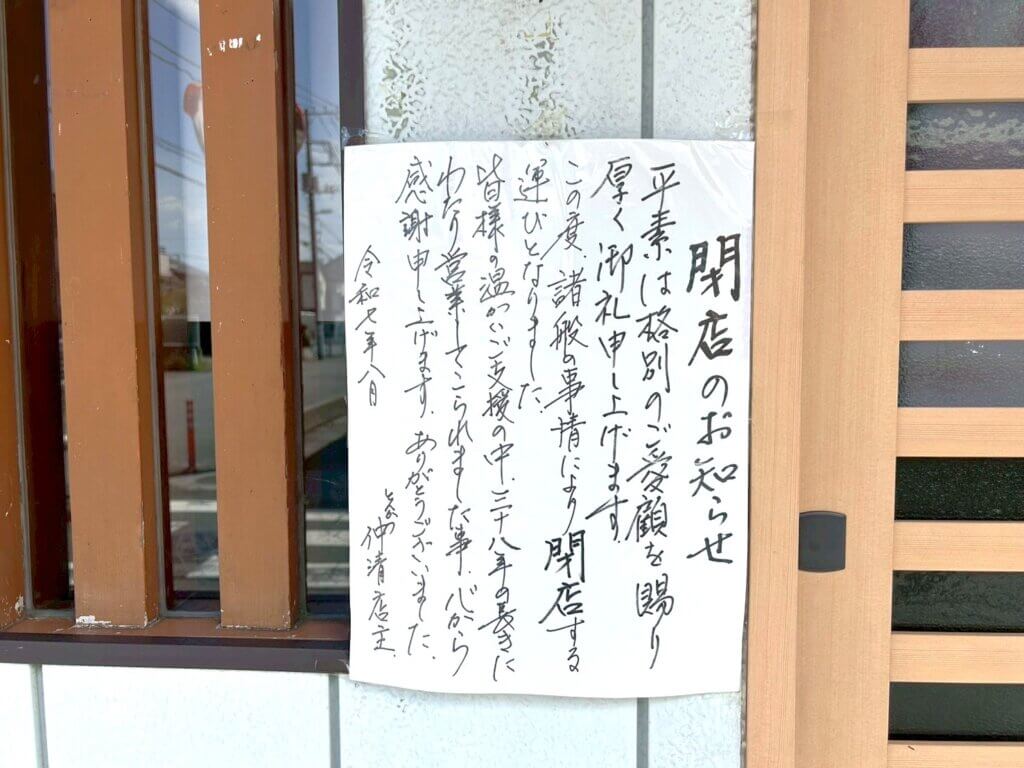 閉店のお知らせ
平素は格別のご愛顧を賜り
厚く御礼申し上げます
この度、諸般の事情により閉店する
運びとなりました。
皆様の温かいご支援の中、三十八年の長きに
わたり営業してこられました事、心から
感謝申し上げます。ありがとうございました。
令和七年八月
仲清店主